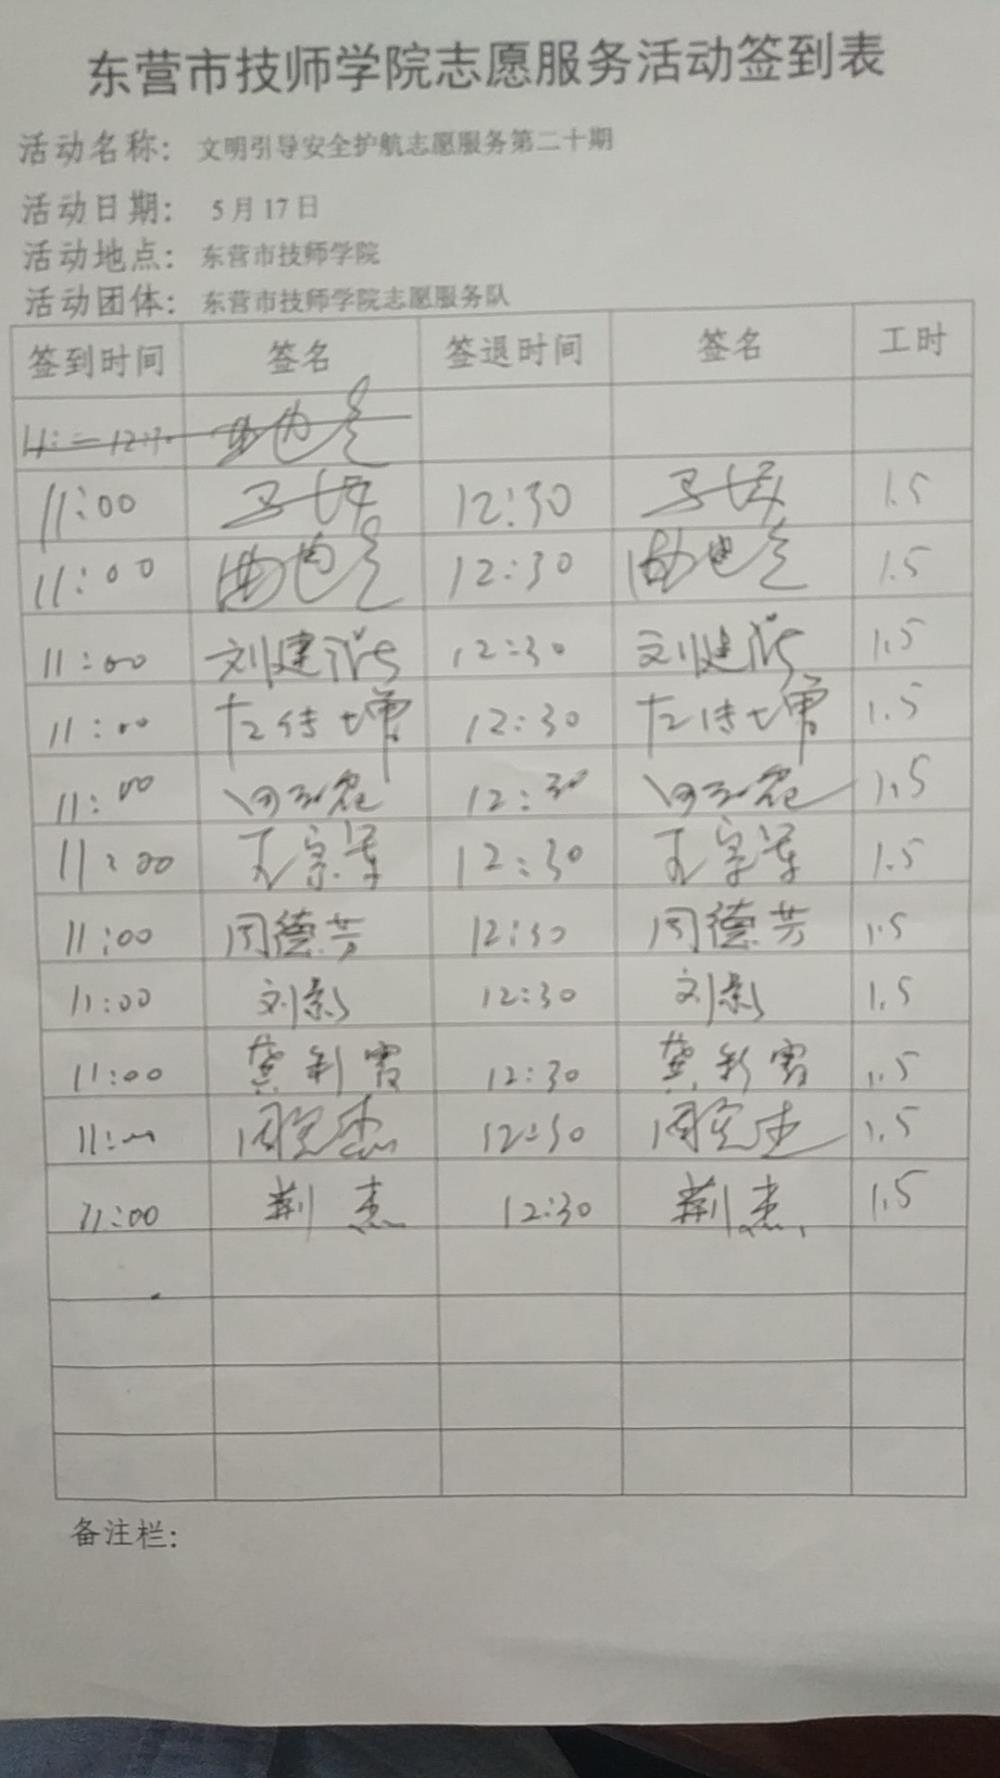 东营市技师学院志愿服务活动签到表
活动名称： 文明引导安全护航志愿服务第二十期
活动日期： 5月17日
活动地点： 东营市技师学院
活动团体： 东营市技师学院志愿服务队
签到时间 签名 签退时间 签名 工时
11:00 12:30 1.5
11:00 12:30 1.5
11:00 刘建 12:30 刘建 1.5
11:00 左传增 12:30 左传增 1.5
11:00 12:30 1.5
11:00 12:30 1.5
11:00 周德芳 12:30 周德芳 1.5
11:00 刘影 12:30 刘影 1.5
11:00 龚利霞 12:30 龚利霞 1.5
11:00 12:30 1.5
11:00 荆杰 12:30 荆杰 1.5
备注栏：